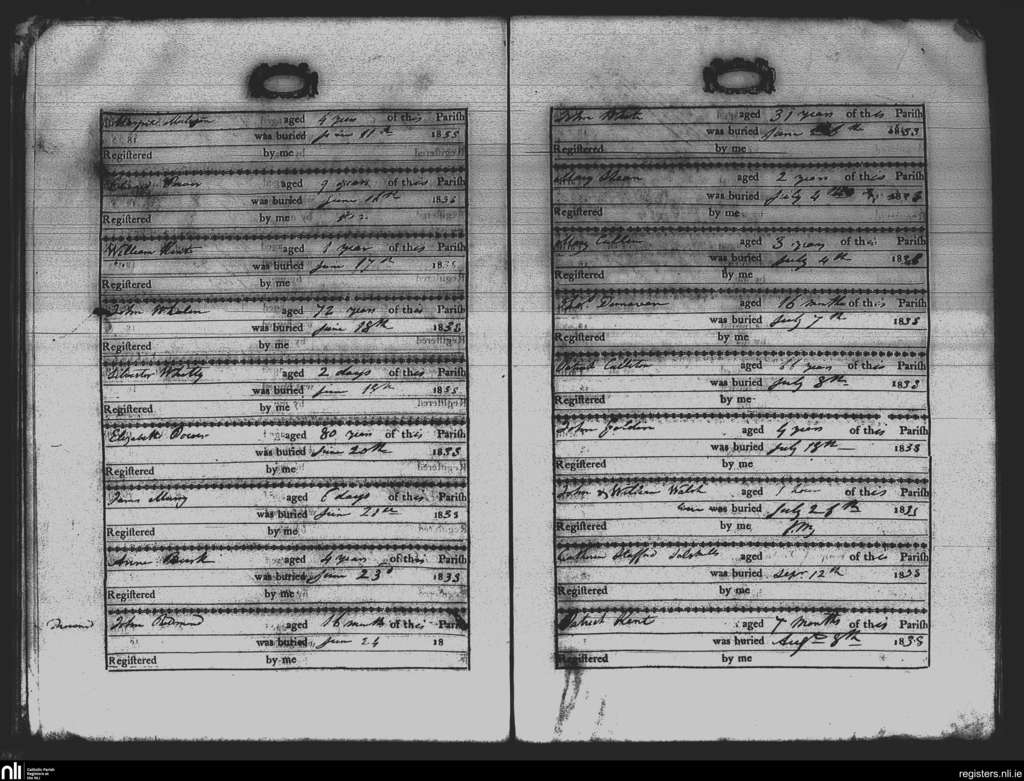 aged 4 years of this Parish
was buried June 11th 1833
Registered by me
aged 9 years of this Parish
was buried June 1833
Registered by me
William aged 1 year of this Parish
was buried June 17th 183
Registered by me
John Whelen aged 72 years of this Parish
was buried June 18th 1833
Registered by me
Silvester Whitty aged 2 days of this Parish
was buried June 1833
Registered by me
Elizabeth Power aged 80 years of this Parish
was buried June 20th 1833
Registered by me
aged 6 days of this Parish
was buried June 21st 1833
Registered by me
Anne aged 4 years of this Parish
was buried June 23d 1833
Registered by me
John Redmond aged 16 months of this Parish
was buried June 24 18
Registered by me
John White aged 31 years of this Parish
was buried June 1833
Registered by me
Mary aged 2 years of this Parish
was buried July 4th 1833
Registered by me
Mary Cullen aged 3 years of this Parish
was buried July 4th 183
Registered by me
Donovan aged 16 months of this Parish
was buried July 7th 1833
Registered by me
Patrick aged years of this Parish
was buried July 8th 1833
Registered by me
John Golden aged 4 years of this Parish
was buried July 18th 1833
Registered by me
John & William Walsh aged 1 hour of this Parish
was buried July 26th 183
Registered by me
Catherine Stafford aged of this Parish
was buried Sepr 12th 1833
Registered by me
Patrick Kent aged 7 months of this Parish
was buried Augst 8th 1833
Registered by me
nli Catholic Parish
Registers at
the NLI
registers.nli.ie